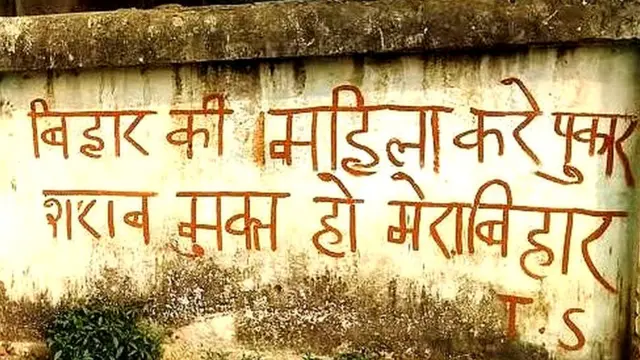 बिहार की महिला करे पुकार
शराब मुक्त हो मेरा बिहार
T.S